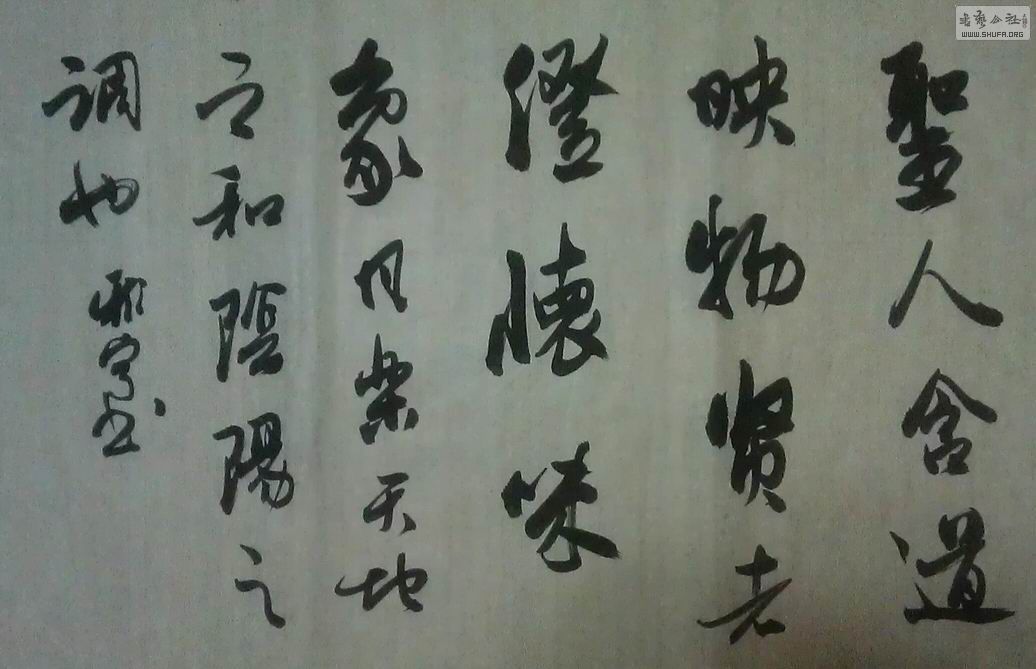 聖人含道
映物贤者
澄懷味
象凡樂天地
之和陰陽之
调也
书艺公社
WWW.SHUFA.ORG